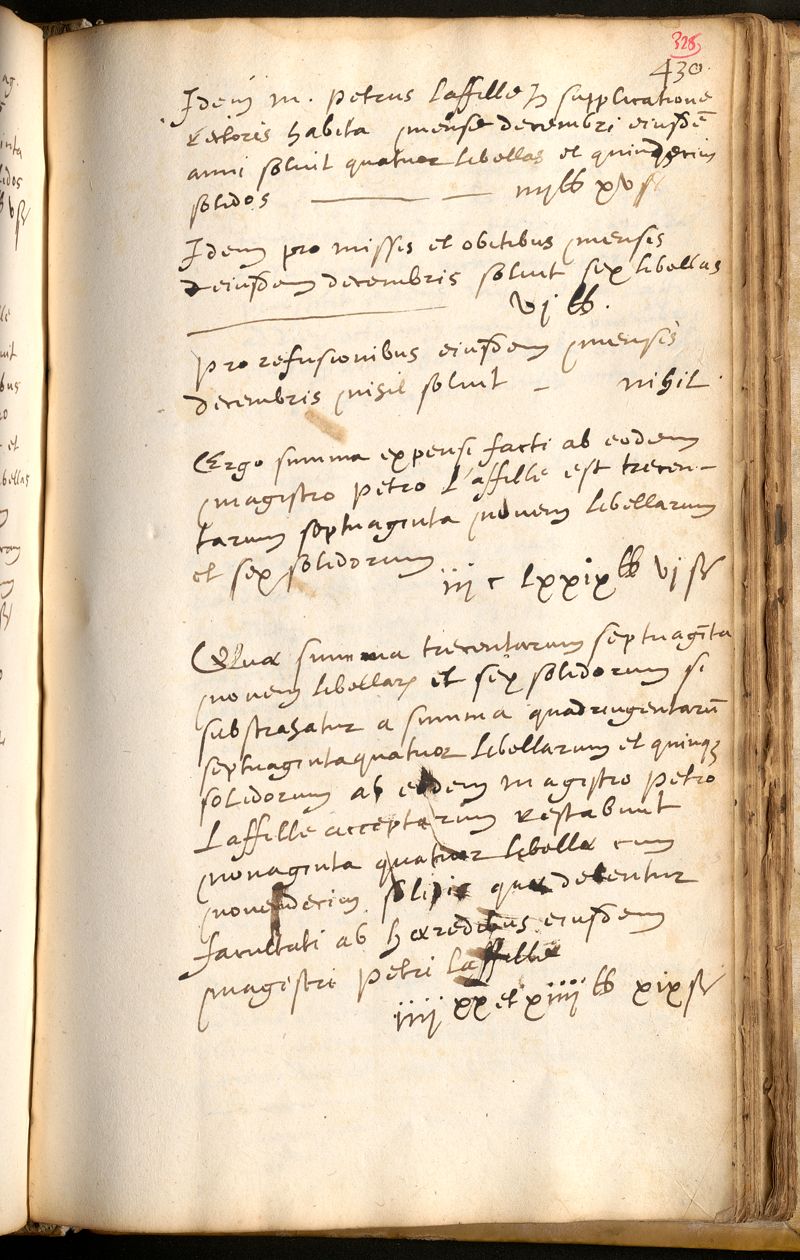 328
430.
Idem m. Petrus Laffille supplicatione
Rectoris habita mense decembri eiusdē
anni soluit quatuor libellas et quindecim
solidos iiij ll xv s
Idem pro missis et obitibus mensis
eiusdem decembris soluit sex libellas
vj ll.
Pro refusionibus eiusdem mensis
decembris nihil soluit – nihil
Ergo summa expensi facti ab eodem
magistro Petro L'affille est trecen-
tarum septuaginta novem libellarum
et sex solidorum iij c lxxix ll vj s
Quæ summa trecentarum septuagīta
novem libellarȝ et sex solidorum si
substrahatur a summa quadringentarū
septuagintaquatuor libellarum et quinqȝ
solidorum ab eodem magistro Petro
Laffille acceptarum restabunt
nonaginta quatuor libellæ cum
novendecim solidis quæ debentur
facultati ab hæredibus eiusdem
magistri Petri Laffille
iiij xx et xiiij ll xix s